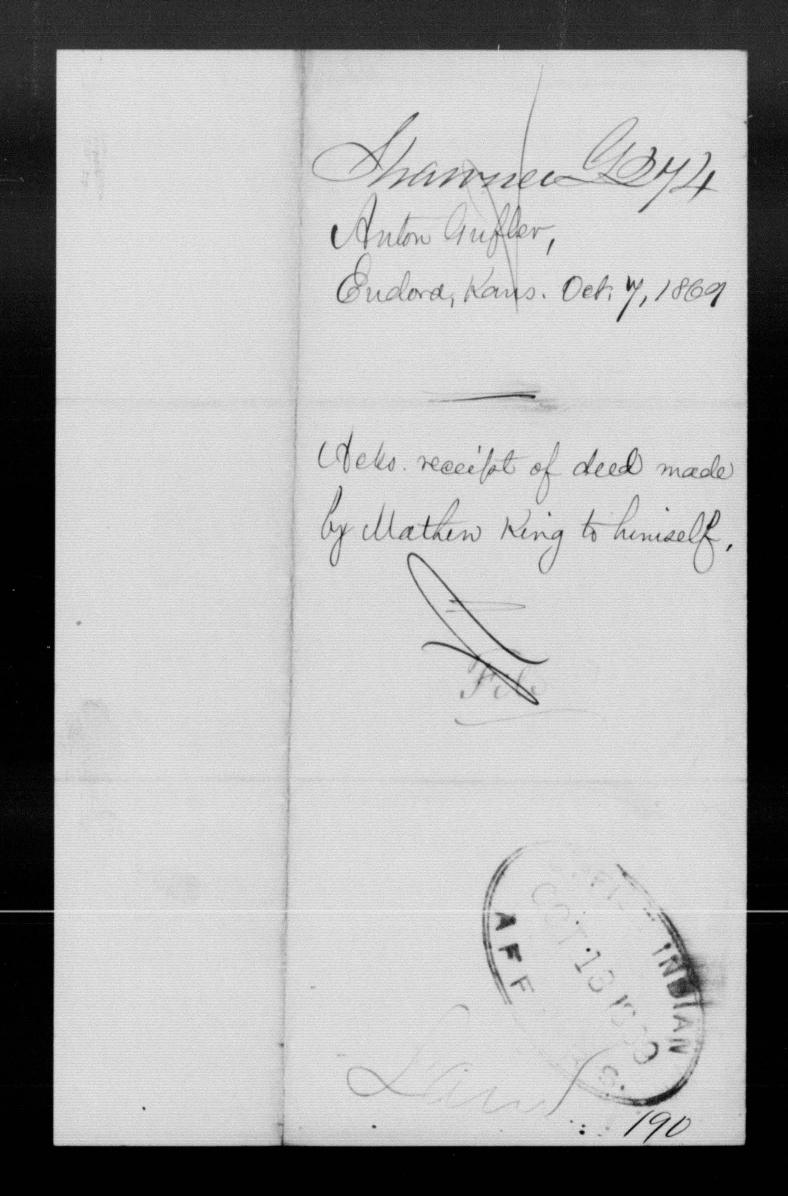 Shawnee G 374
Anton Gufler,
Eudora, Kans. Oct. 7, 1869
Acks. receipt of deed made
by Mathew King to himself.
File
OFFICE INDIAN AFFAIRS.
OCT 13 1869
Land
190